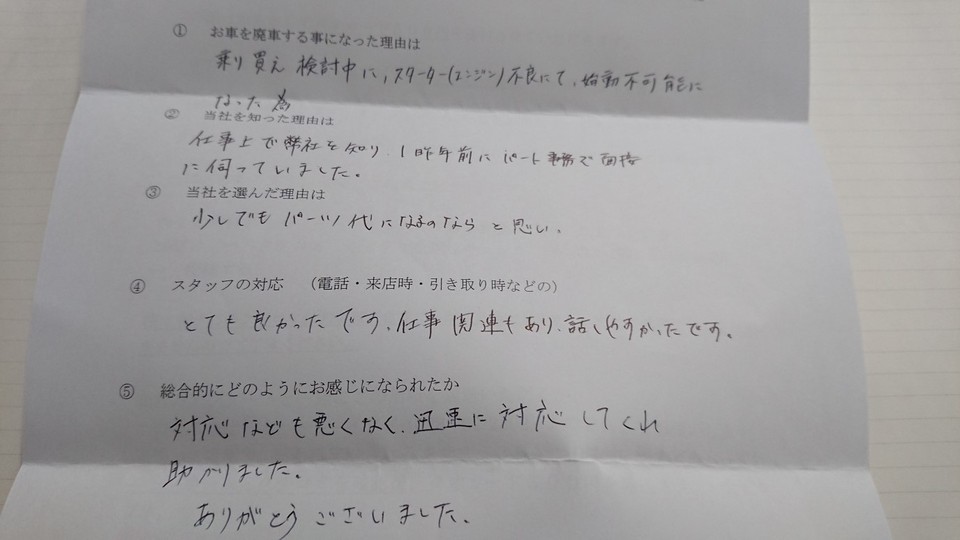 ① お車を廃車する事になった理由は
乗り買え 検討中に,スターター(エンジン)不良にて,始動不可能に
なった為
② 当社を知った理由は
仕事上で弊社を知り、1昨年前に パート事務で面接
に伺っていました。
③ 当社を選んだ理由は
少しでも パーツ代になるのなら と思い。
④ スタッフの対応 （電話・来店時・引き取り時などの）
とても良かったです、仕事関連もあり、話しやすかったです。
⑤ 総合的にどのようにお感じになられたか
対応なども悪くなく、迅速に対応してくれ
助かりました。
ありがとうございました。